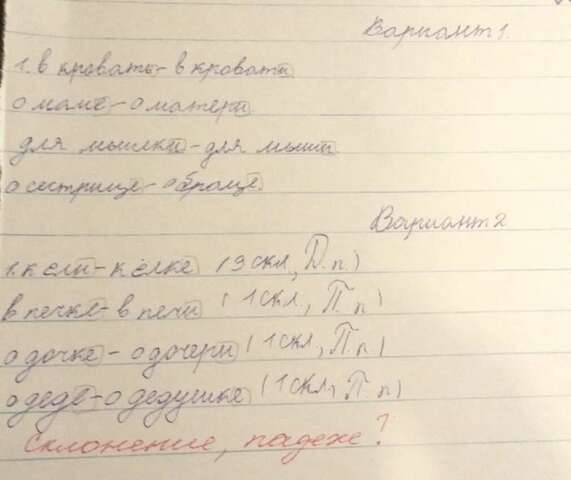 Вариант 1.
1. в кровать - в кровати
о маме - о матери
для мышки - для мыши
о сестрице - о браце.
Вариант 2
1. к ели - к ёлке (3 скл, Д.п.)
в печке - в печи (1 скл, П.п)
о дочке - о дочери (1 скл, П.п.)
о деде - о дедушке (1 скл, П.п)
Склонение, падеж?